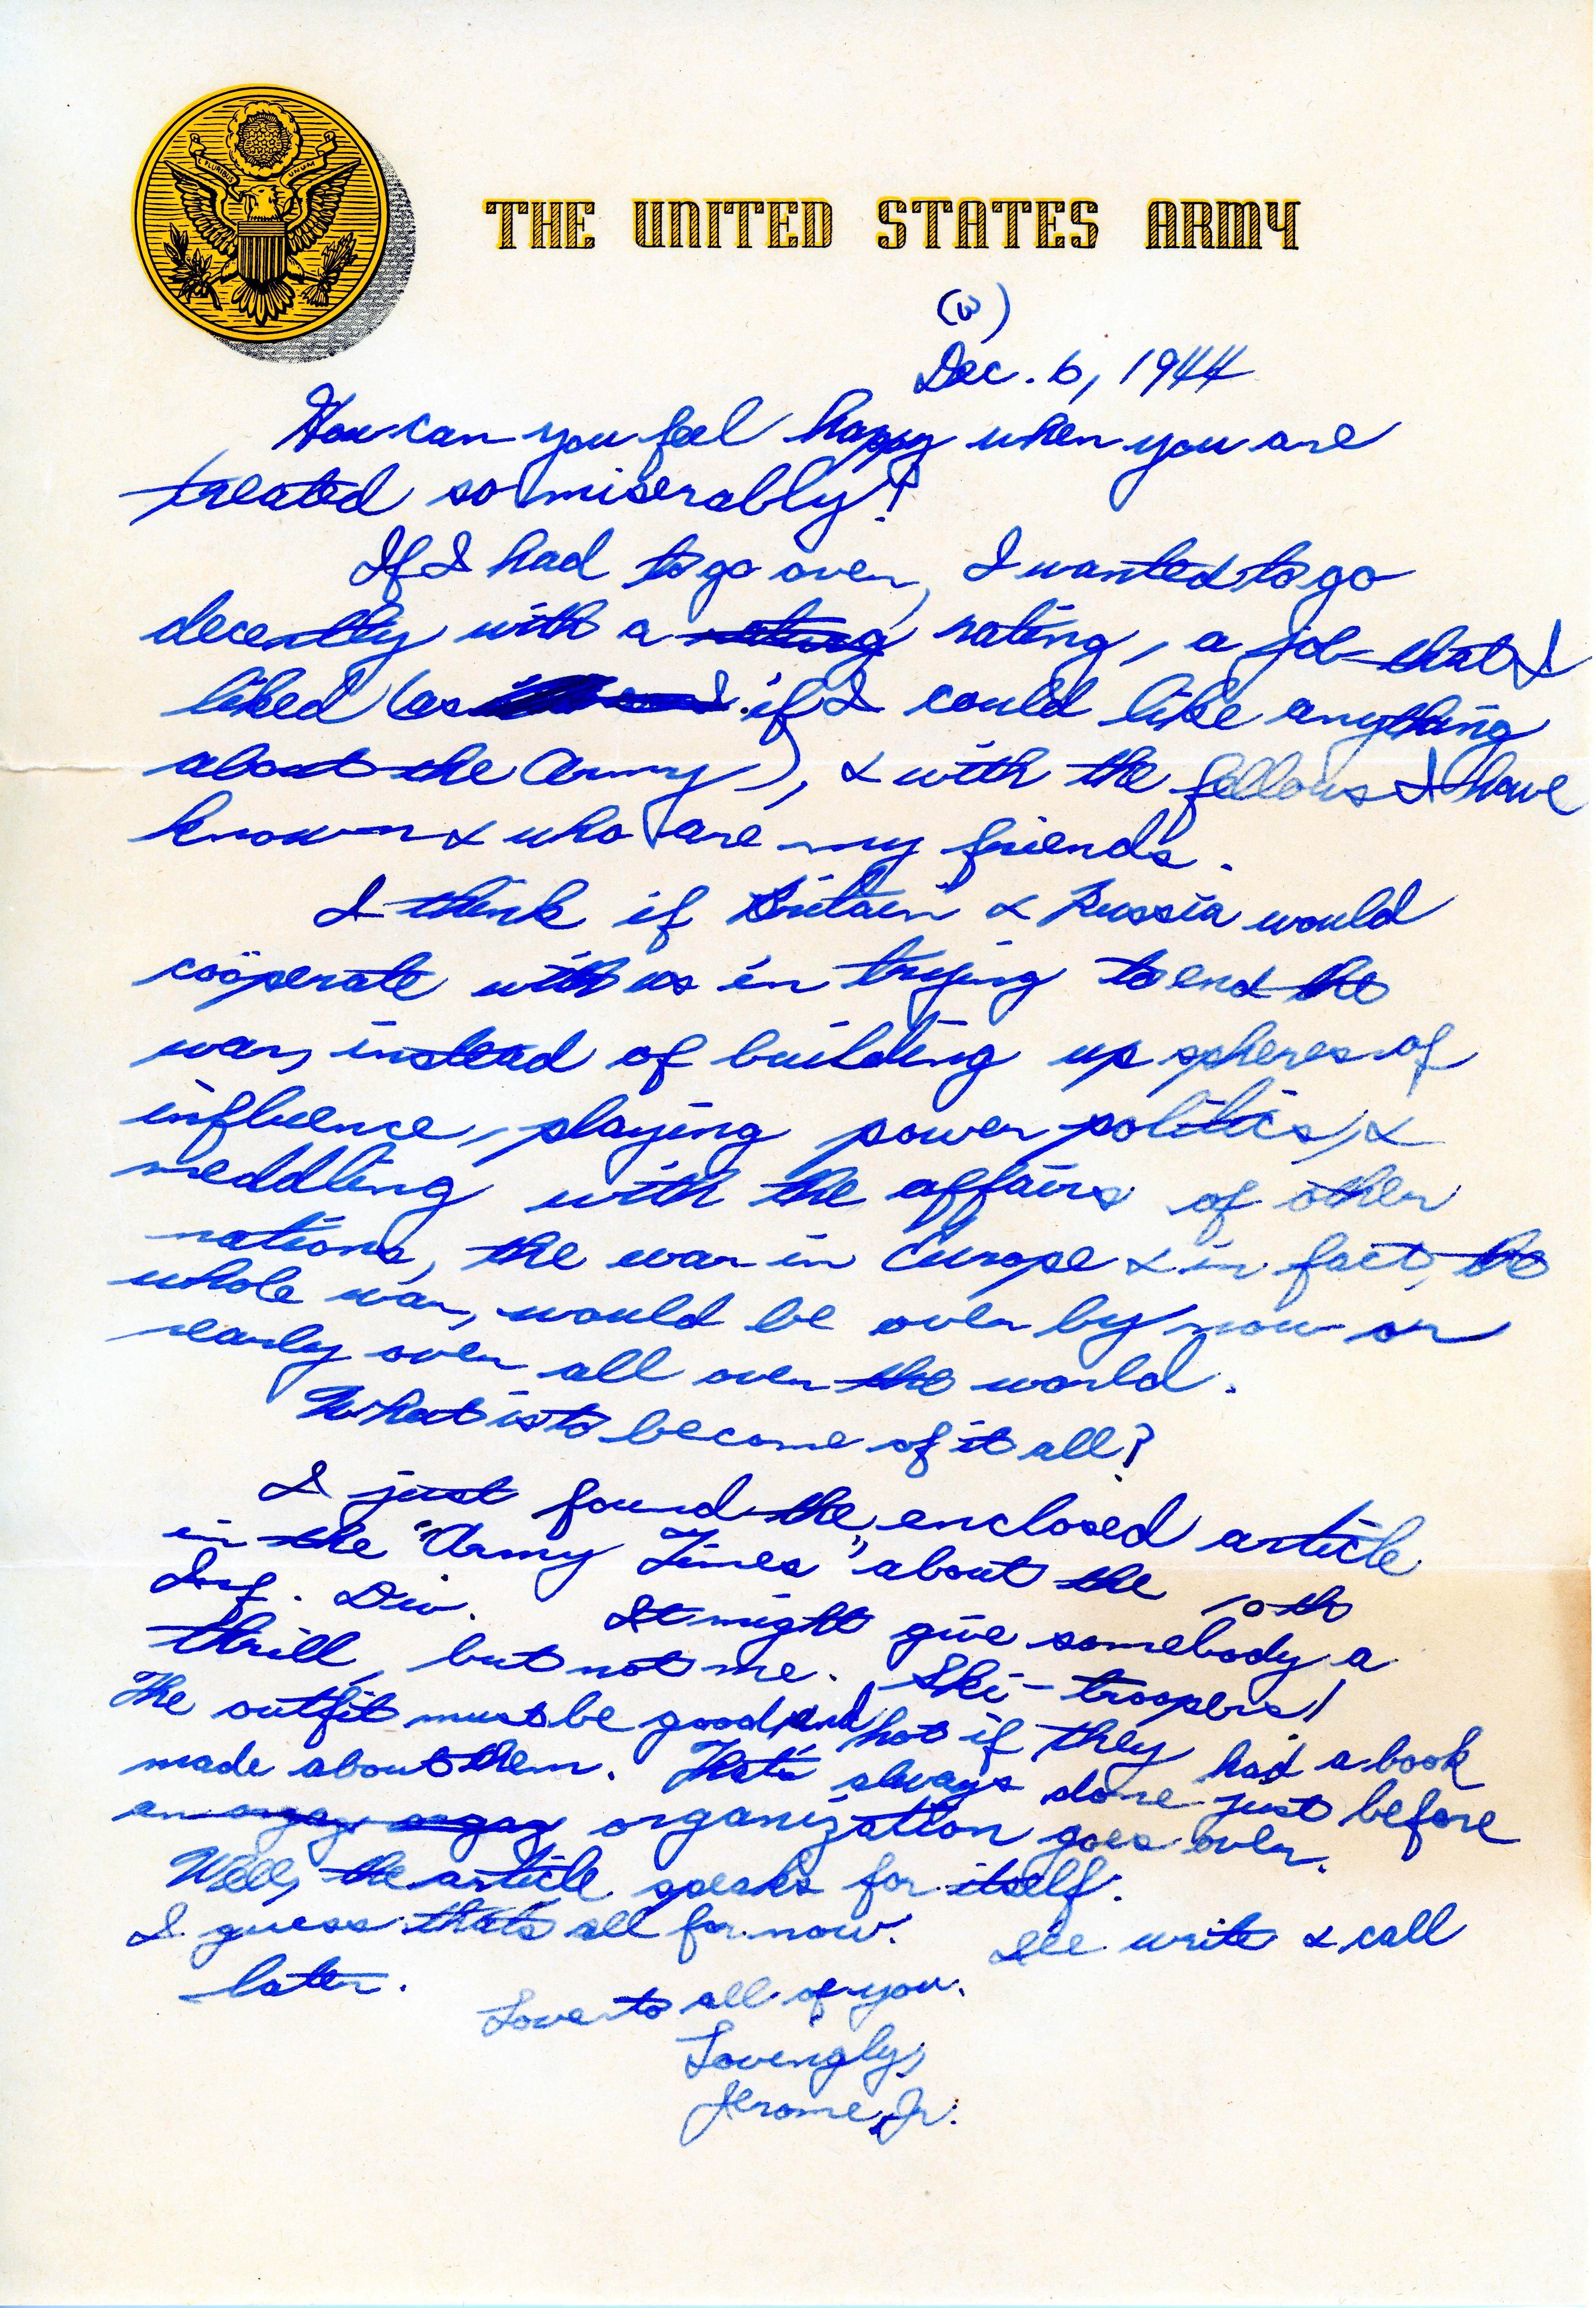 E PLURIBUS UNUM
THE UNITED STATES ARMY
(3)
Dec. 6, 1944
How can you feel happy when you are
treated so miserably!
If I had to go over, I wanted to go
decently with a rating rating, a job that I
liked (as if I could like anything
about the Army), & with the fellows I have
known & who are my friends.
I think if Britain & Russia would
coöperate with us in trying to end the
war, instead of building up spheres of
influence, playing power politics, &
meddling with the affairs of other
nations, the war in Europe & in fact, the
whole war, would be over by now or
nearly over all over the world.
What is to become of it all?
I just found the enclosed article
in the "Army Times" about the 10th
Inf. Div. It might give somebody a
thrill, but not me. Ski-troopers!
The outfit must be good and hot if they had a book
made about them. That's always done just before
an orgag orgag organization goes over.
Well, the article speaks for itself.
I guess that's all for now. I'll write & call
later.
Love to all of you.
Lovingly,
Jerome, Jr.